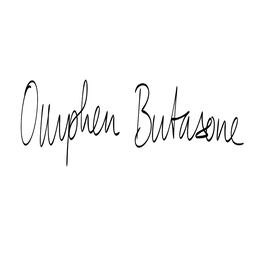 Ouyphen Butasone